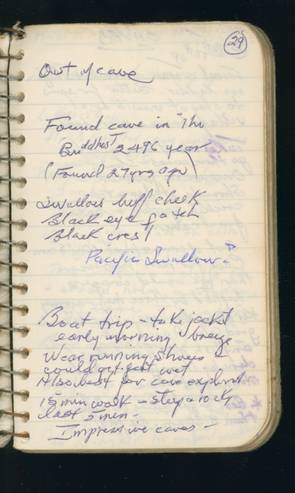 29
Out of cave
Found cave in The
Buddhist 2496 year
(Found 27 yrs ago)
Swallow buff cheek
Black eye patch
Black crest
Pacific Swallow?
Boat trip - take jacket
early morning breeze
Wear running shoes
could get feet wet
Also best for cave explorn
15 min walk - steep & rocky
last 5 min -
Impressive caves -